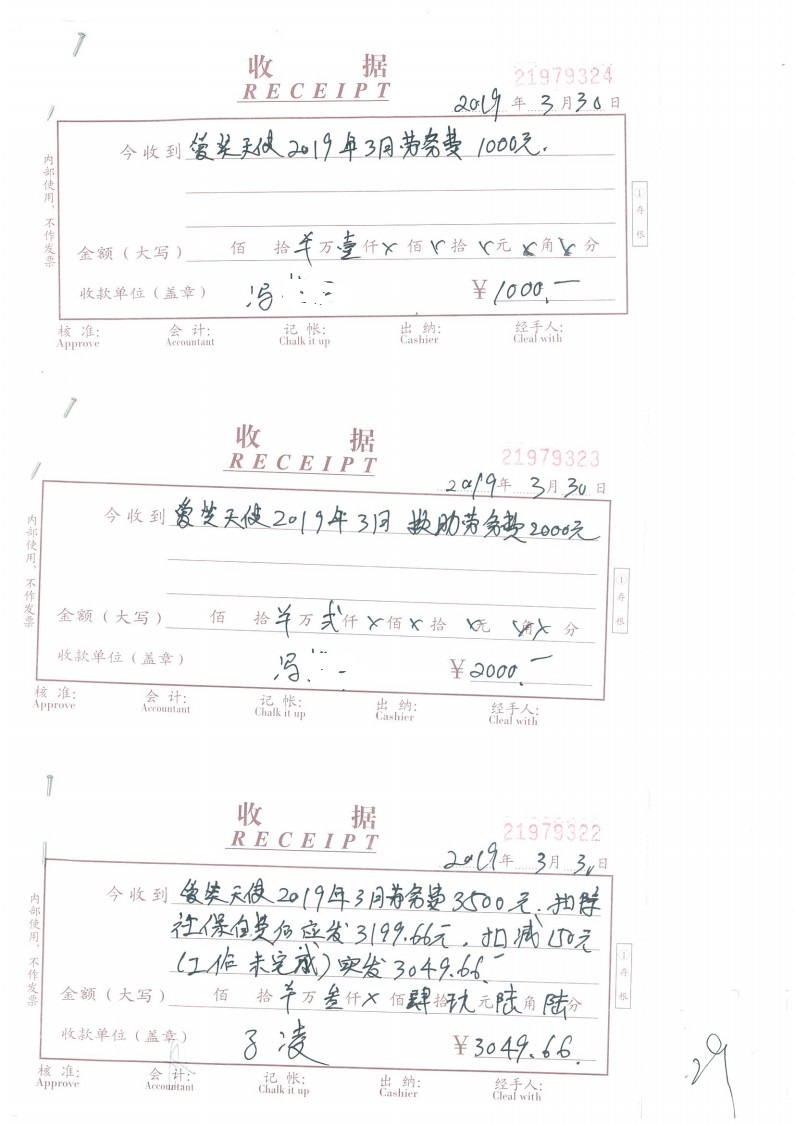 收 据
RECEIPT
21979324
2019年3月30日
今收到 爱笑天使2019年3月劳务费 1000元.
内部使用、不作发票
①存根
金额(大写) 佰 拾 羊 万 壹 仟 x 佰 x 拾 x 元 x 角 x 分
收款单位(盖章) 冯 ¥1000.—
核 准: 会 计: 记 帐: 出 纳: 经手人:
Approve Accountant Chalk it up Cashier Cleal with
收 据
RECEIPT
21979323
2019年3月30日
今收到 爱笑天使2019年3月 救助劳务费2000元
内部使用、不作发票
①存根
金额(大写) 佰 拾 羊 万 贰 仟 x 佰 x 拾 x 元 x 角 x 分
收款单位(盖章) 冯 ¥2000.—
核 准: 会 计: 记 帐: 出 纳: 经手人:
Approve Accountant Chalk it up Cashier Cleal with
收 据
RECEIPT
21979322
2019年3月30日
今收到 爱笑天使2019年3月劳务费3500元.扣除
社保自费后应发3199.66元,扣减150元
(工作未完成)实发3049.66
内部使用、不作发票
①存根
金额(大写) 佰 拾 羊 万 叁 仟 x 佰 肆 拾 玖 元 陆 角 陆 分
收款单位(盖章) 子凌 ¥3049.66.
核 准: 会 计: 记 帐: 出 纳: 经手人:
Approve Accountant Chalk it up Cashier Cleal with
29